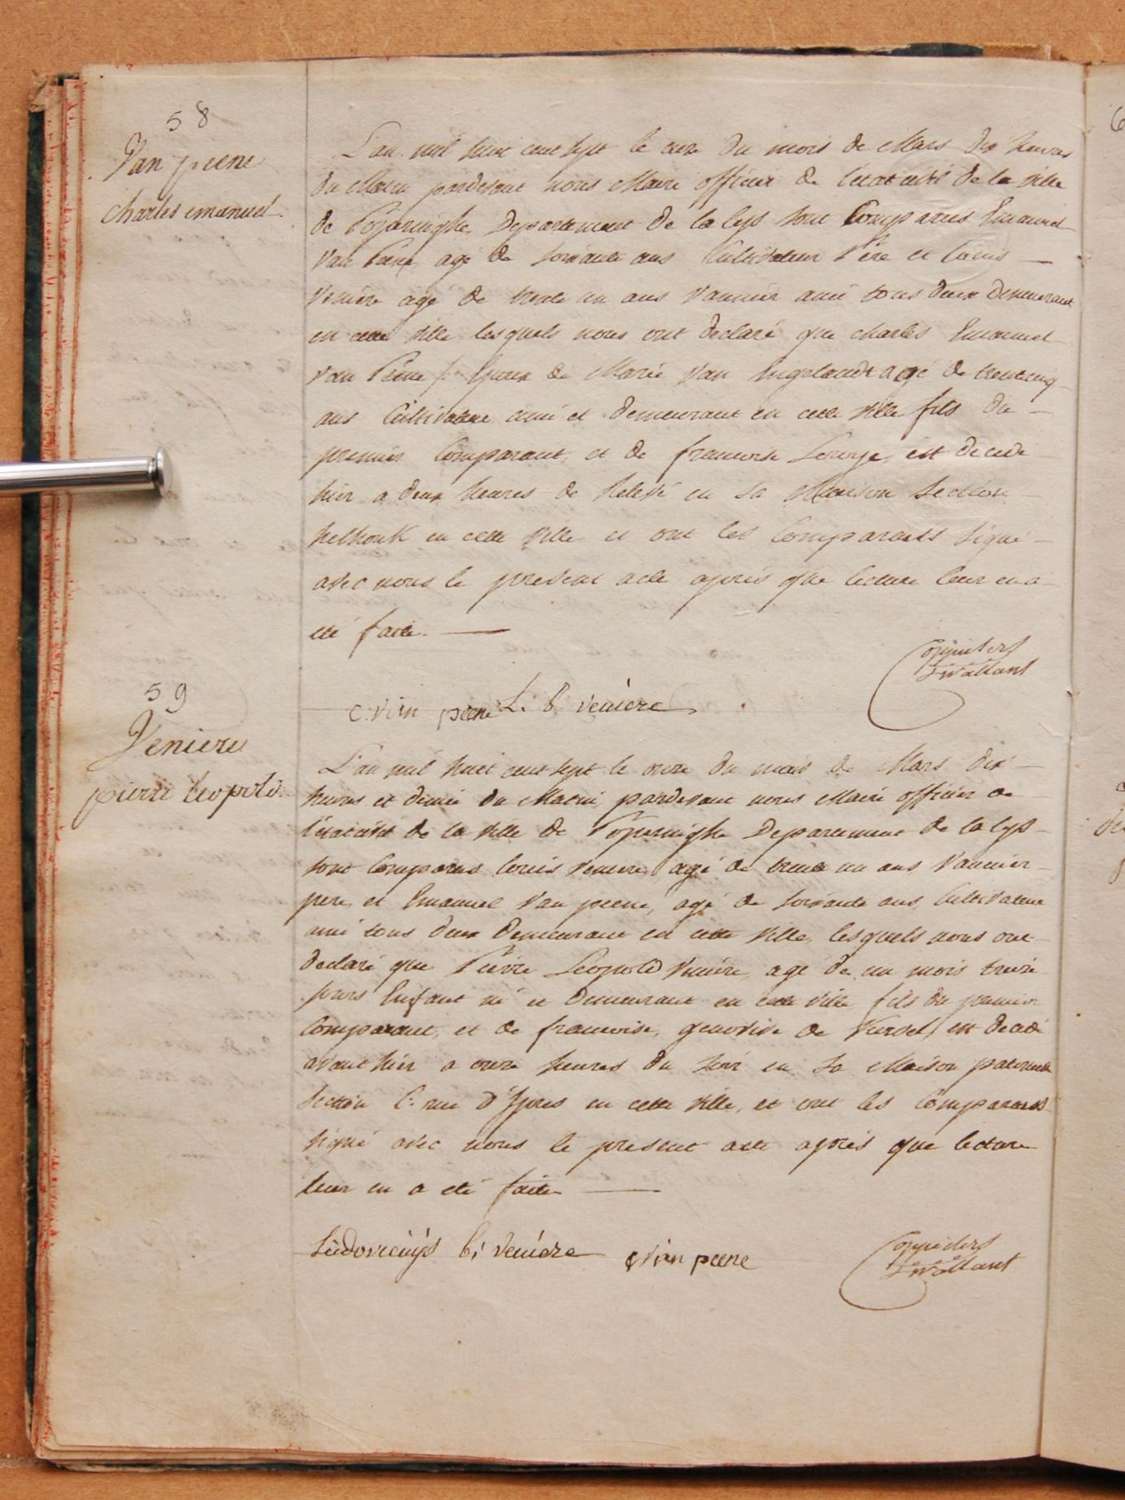 58
Van peene
charles emanuel
L'an mil huit cent sept le onze du mois de Mars dix heures
du Matin pardevant nous Maire officier de l'etat civil de la ville
de Poperinghe, Departement de la Lys sont Comparus Emanuel
Van Peene agé de soixante ans Cultivateur Père et Louis
Veniere agé de trente un ans Vannier ami tous deux Demeurant
en cette ville lesquels nous ont declaré que charles Emanuel
Van Peene Epoux de Marie Van Ingelandt agé de trentecinq
ans Cultivateur né et demeurant en cette ville fils du
premier Comparant, et de francoise est decedé
hier a deux heures de en sa Maison Section
helhouk en cette ville et ont les Comparants signé
avec nous le present acte après que lecture leur en a
eté faite.
C. van peene L. b. veniere
59
Veniere
pierre leopold
L'an mil huit cent sept le onze du mois de Mars dix
heures et demie du Matin, pardevant nous Maire officier de
l'etat civil de la ville de Poperinghe Departement de la Lys
sont Comparus Louis Veniere agé de trente un ans Vannier
pere, et Emanuel Van peene, agé de soixante ans, Cultivateur
ami tous deux Demeurant en cette ville, lesquels nous ont
declaré que Pierre Leopold Veniere agé de un mois treize
jours Enfant né et Demeurant en cette ville fils du premier
Comparant, et de francoise, de est decedé
avant hier a onze heures du soir en sa Maison paternelle
Section C. rue d'Ypres en cette ville, et ont les Comparants
signé avec nous le present acte après que lecture
leur en a eté faite
Ludovicuijs b: Veniere van peene